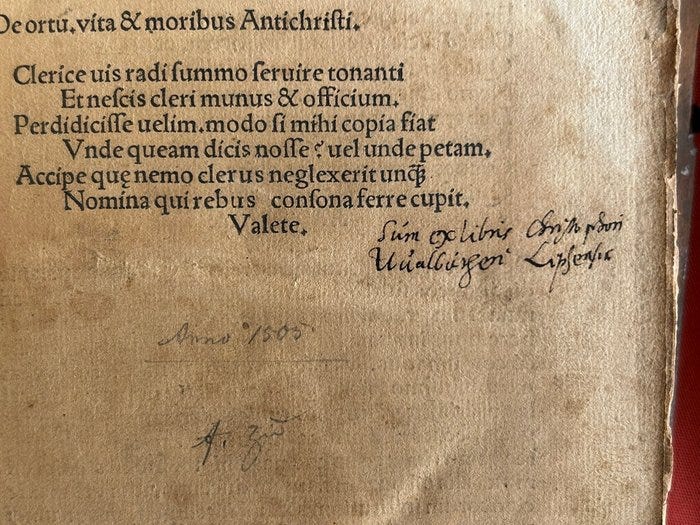 De ortu.vita & moribus Antichriſti.
Clerice uis radi ſummo ſeruire tonanti
Et neſcis cleri munus & officium.
Perdidiciſſe uelim.modo ſi mihi copia fiat
Vnde queam dicis noſſe ? uel unde petam.
Accipe quę nemo clerus neglexerit unꝗ̈
Nomina qui rebus conſona ferre cupit.
Valete.
Sum ex libris Christophori
Lipsensis
Anno 1505